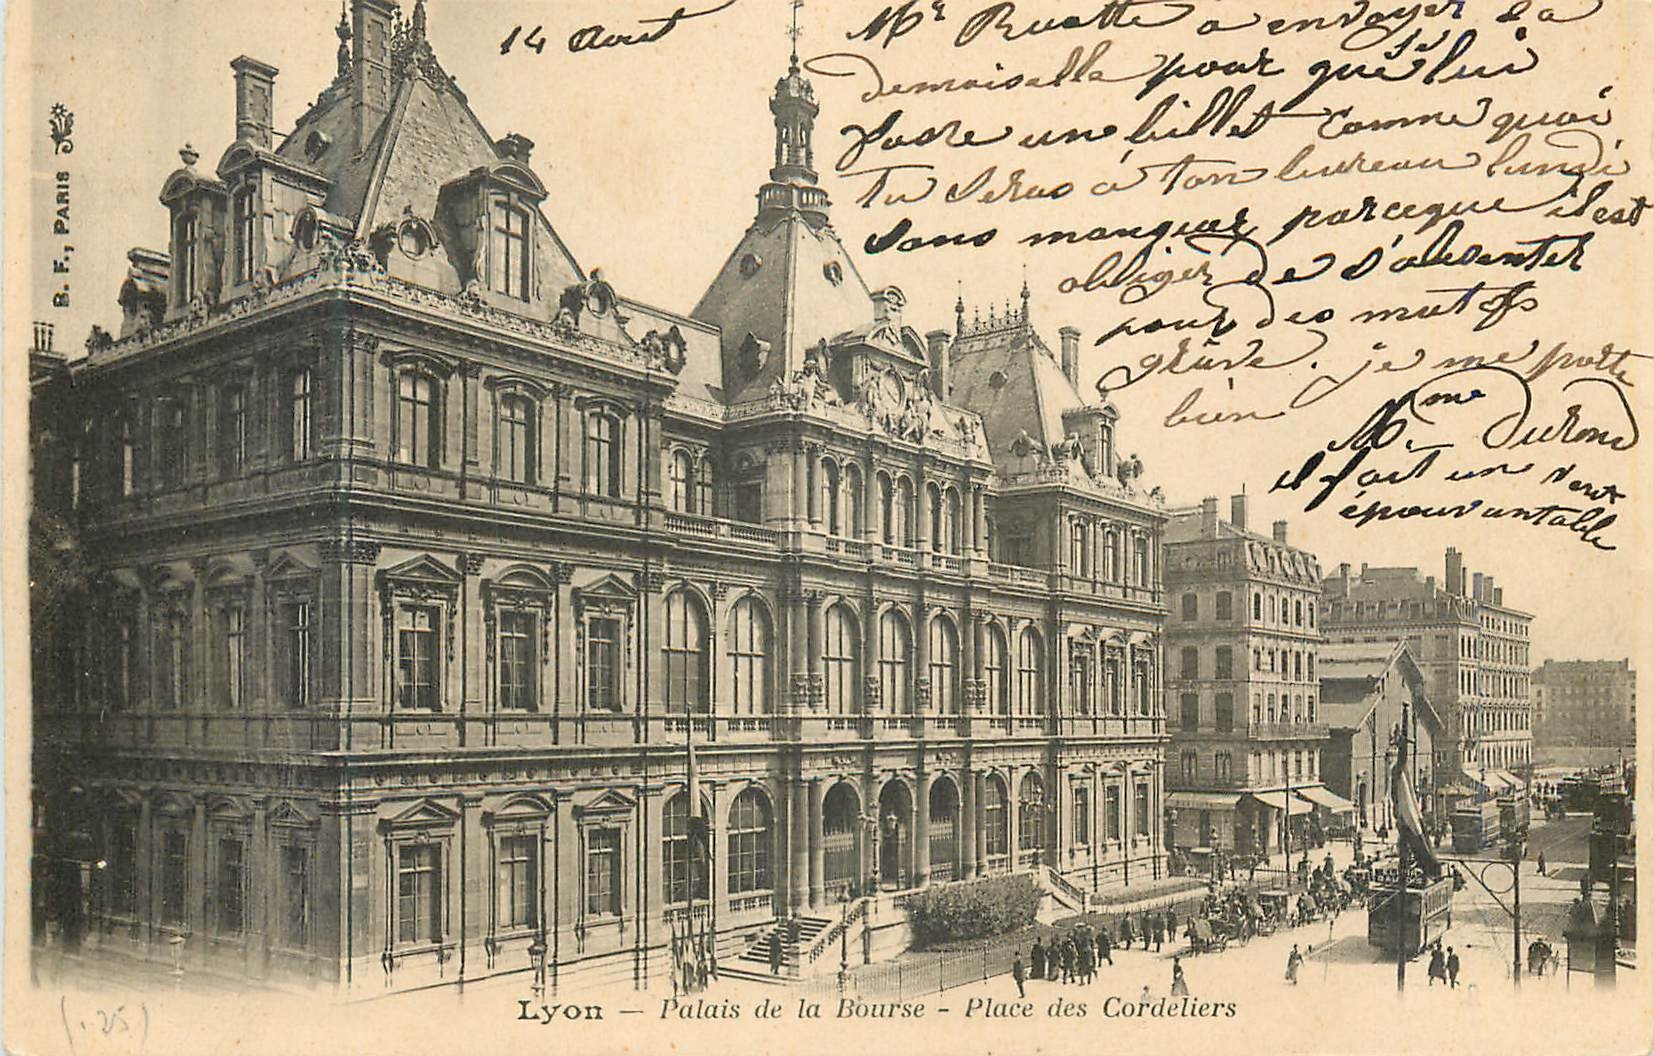 14 Aout
Mr Ruatte a envoyer sa
demoiselle pour que lui
fasse un billet comme quoi
tu seras à ton bureau lundi
sans manquer parceque il est
obliger de s'absenter
pour des motifs
grâve. je me porte
bien
Mme Durond
il fait un vent
épouvantable
B. F., PARIS
Lyon — Palais de la Bourse - Place des Cordeliers
(.25)